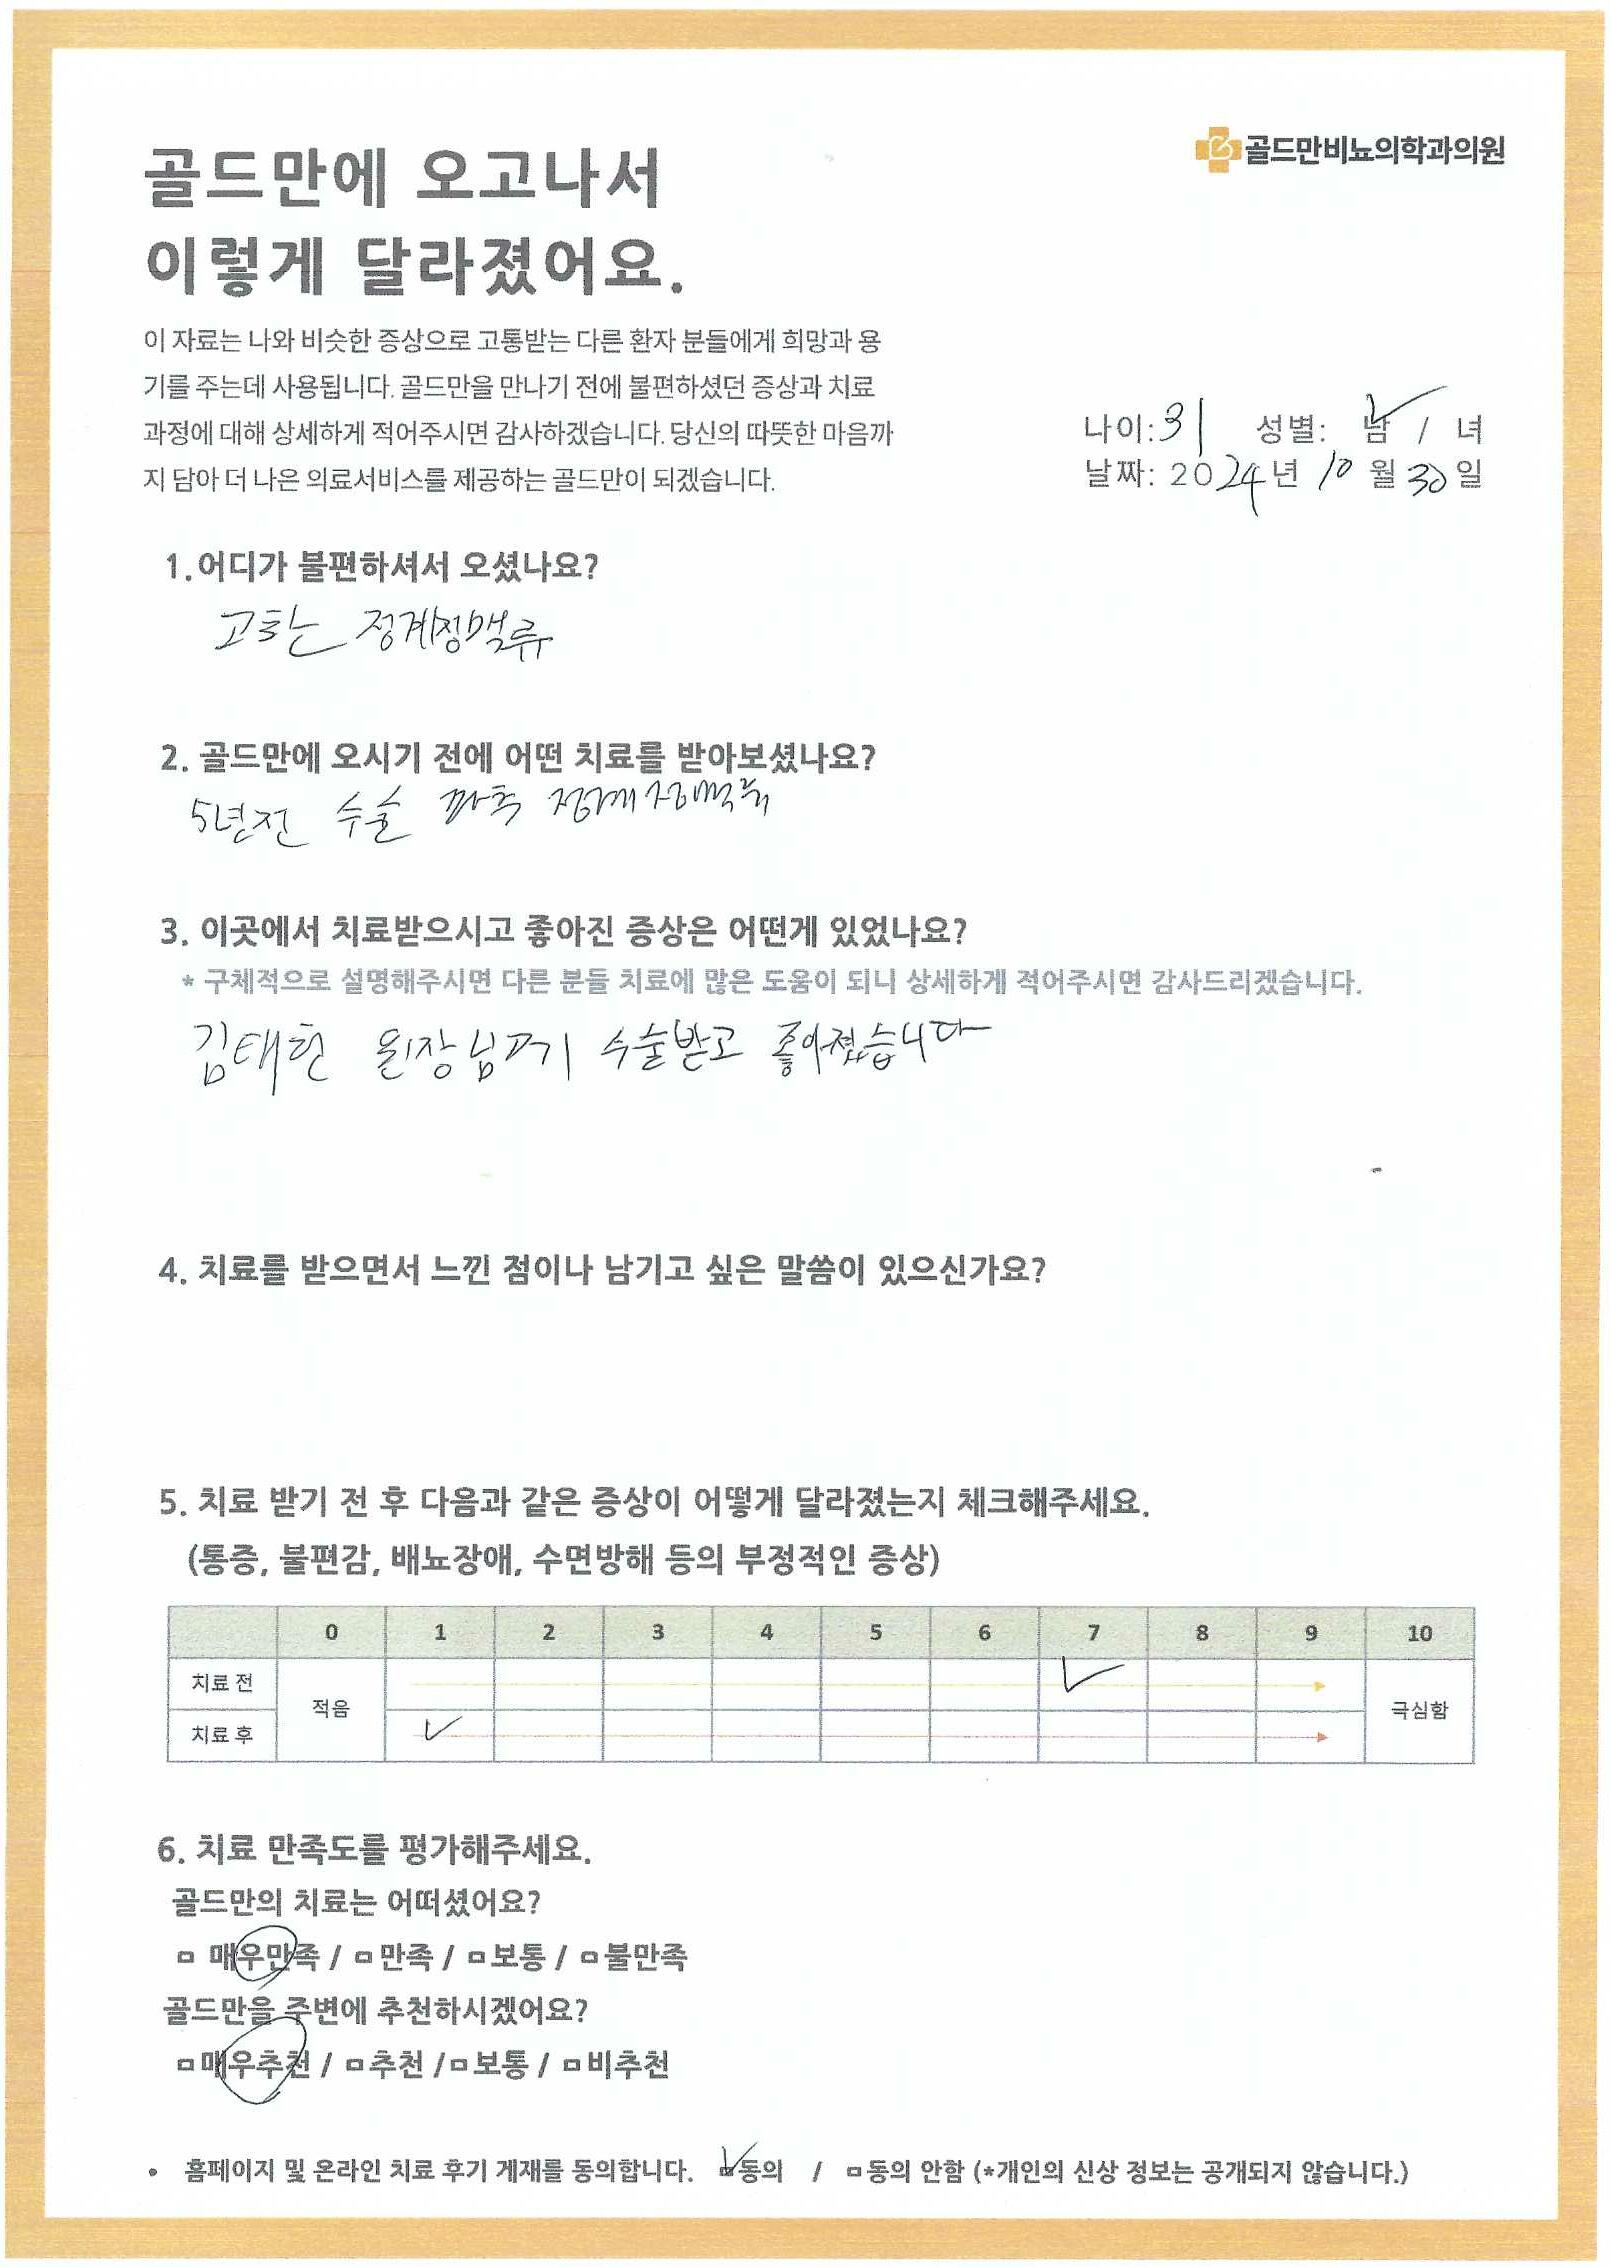 골드만비뇨의학과의원
골드만에 오고나서
이렇게 달라졌어요.
이 자료는 나와 비슷한 증상으로 고통받는 다른 환자 분들에게 희망과 용
기를 주는데 사용됩니다. 골드만을 만나기 전에 불편하셨던 증상과 치료
과정에 대해 상세하게 적어주시면 감사하겠습니다. 당신의 따뜻한 마음까
지 담아 더 나은 의료서비스를 제공하는 골드만이 되겠습니다.
나이: 31 성별: 남 / 녀
날짜: 2024년 10월 30일
1. 어디가 불편하셔서 오셨나요?
고환 정계정맥류
2. 골드만에 오시기 전에 어떤 치료를 받아보셨나요?
5년전 수술 정계정맥류
3. 이곳에서 치료받으시고 좋아진 증상은 어떤게 있었나요?
* 구체적으로 설명해주시면 다른 분들 치료에 많은 도움이 되니 상세하게 적어주시면 감사드리겠습니다.
김태헌 원장님께 수술받고 좋아졌습니다
4. 치료를 받으면서 느낀 점이나 남기고 싶은 말씀이 있으신가요?
5. 치료 받기 전 후 다음과 같은 증상이 어떻게 달라졌는지 체크해주세요.
(통증, 불편감, 배뇨장애, 수면방해 등의 부정적인 증상)
0 1 2 3 4 5 6 7 8 9 10
치료 전
적음 극심함
치료 후
6. 치료 만족도를 평가해주세요.
골드만의 치료는 어떠셨어요?
□ 매우만족 / □ 만족 / □ 보통 / □ 불만족
골드만을 주변에 추천하시겠어요?
□ 매우추천 / □ 추천 / □ 보통 / □ 비추천
• 홈페이지 및 온라인 치료 후기 게재를 동의합니다. □ 동의 / □ 동의 안함 (*개인의 신상 정보는 공개되지 않습니다.)